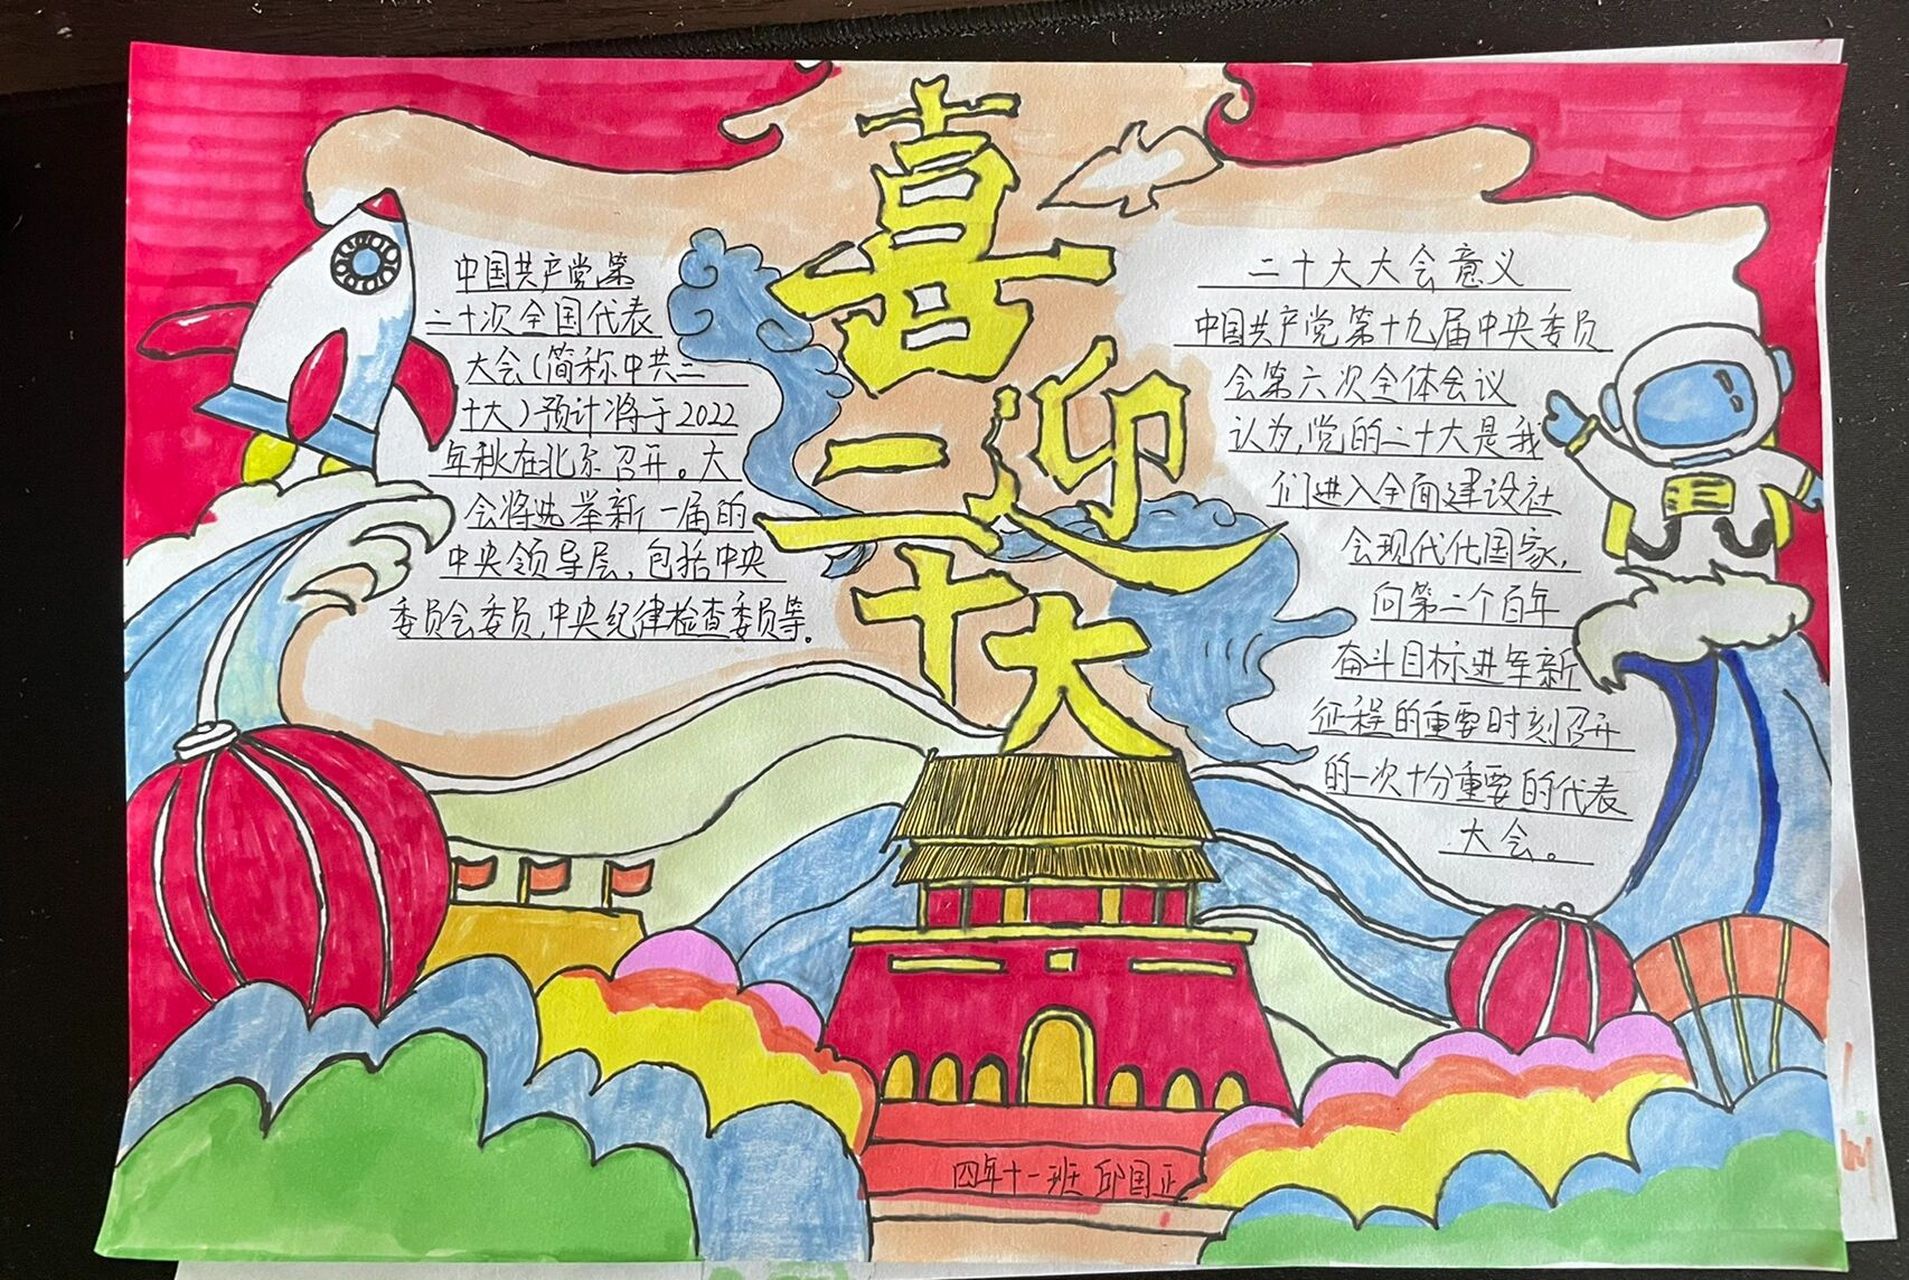 喜迎二十大
中国共产党第
二十次全国代表
大会(简称中共二
十大)预计将于2022
年秋在北京召开。大
会将选举新一届的
中央领导层,包括中央
委员会委员,中央纪律检查委员等。
二十大大会意义
中国共产党第十九届中央委员
会第六次全体会议
认为,党的二十大是我
们进入全面建设社
会现代化国家,
向第二个百年
奋斗目标进军新
征程的重要时刻召开
的一次十分重要的代表
大会。
四年十一班 邱国正